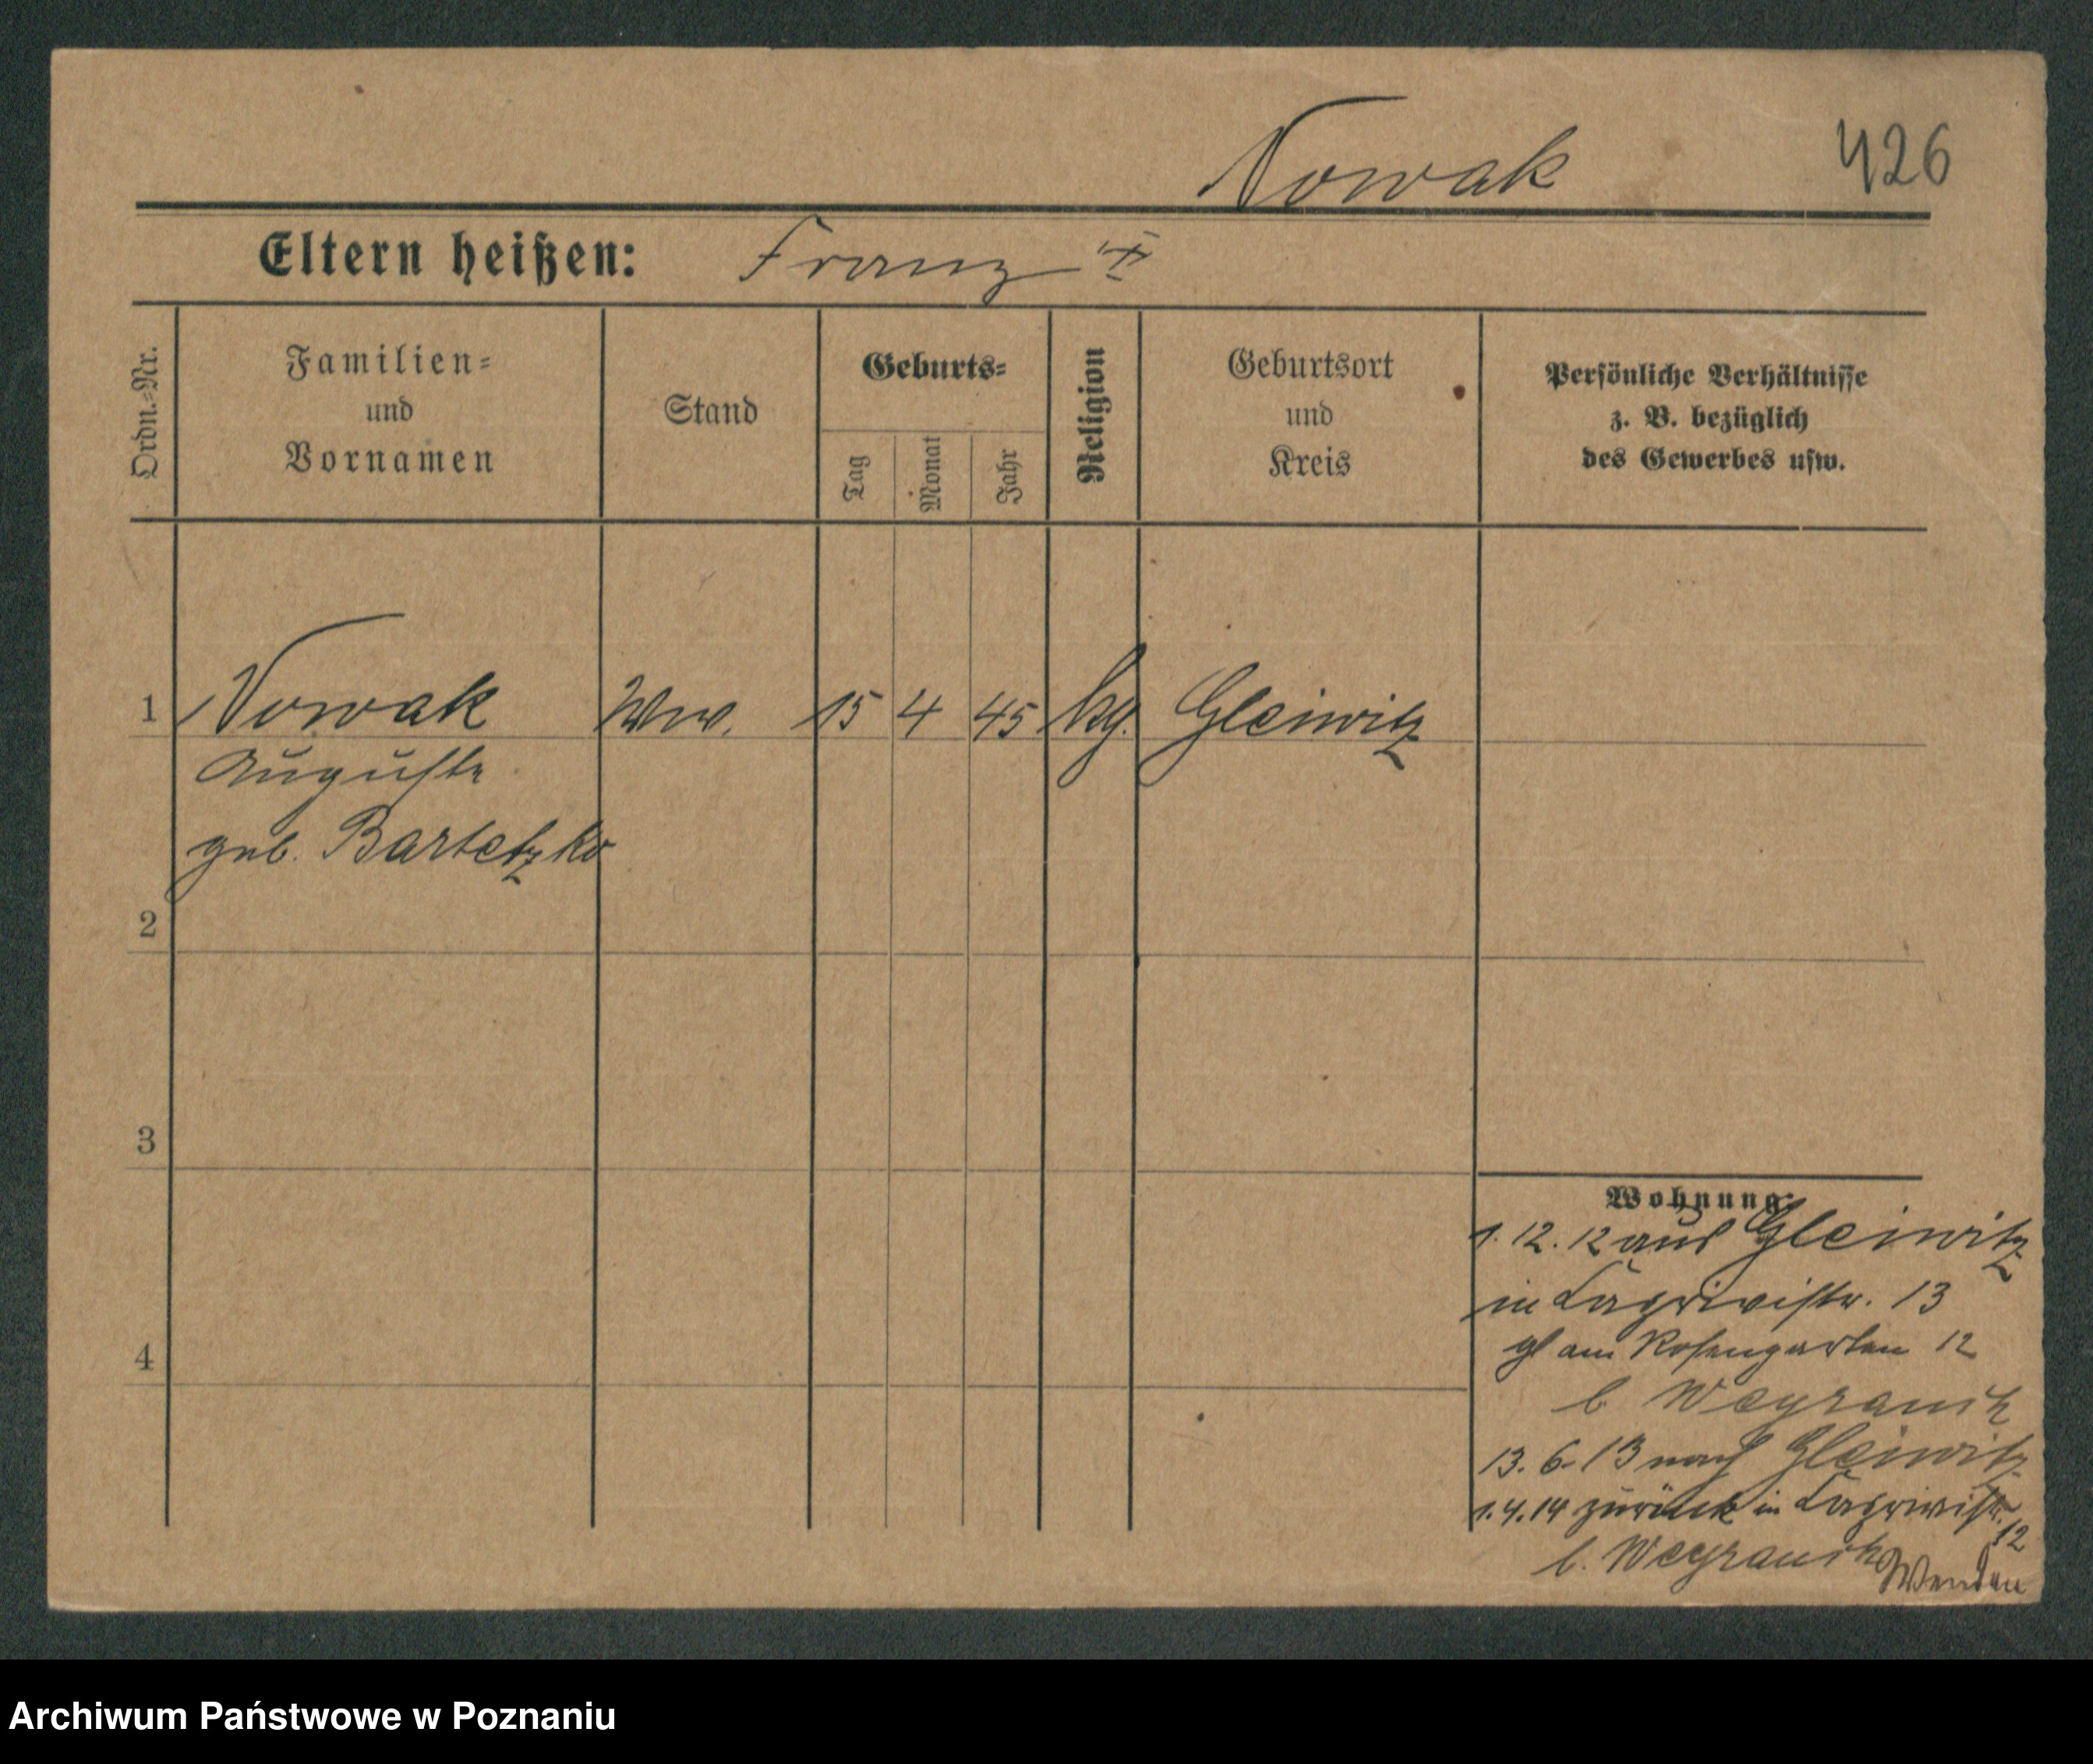 Nowak 426
Eltern heißen: Franz
Ordn.=Nr.
Familien=
und
Vornamen
Stand
Geburts=
Tag
Monat
Jahr
Religion
Geburtsort
und
Kreis
Persönliche Verhältnisse
z. B. bezüglich
des Gewerbes usw.
1 Nowak Ww. 15 4 45 kg. Gleiwitz
Auguste
geb. Bartetzko
2
3
4
Wohnung:
1. 12. 12 aus Gleiwitz
in 13
am Rosengarten 12
b Weyrauch
13. 6. 13 nach Gleiwitz
1. 4. 14 zurück in
12
b. Weyrauch
Wenden
Archiwum Państwowe w Poznaniu